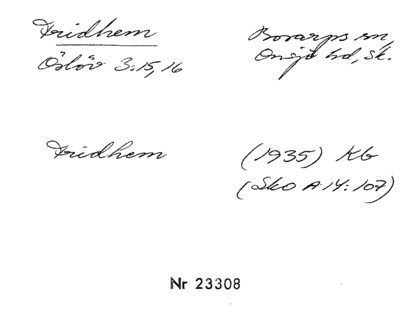 Fridhem
Bosarps sn,
Öslöv 3:15,16
Onsjö hd, Sk.
Fridhem
(1935) Kb
(Sko A 14:107)
Nr 23308